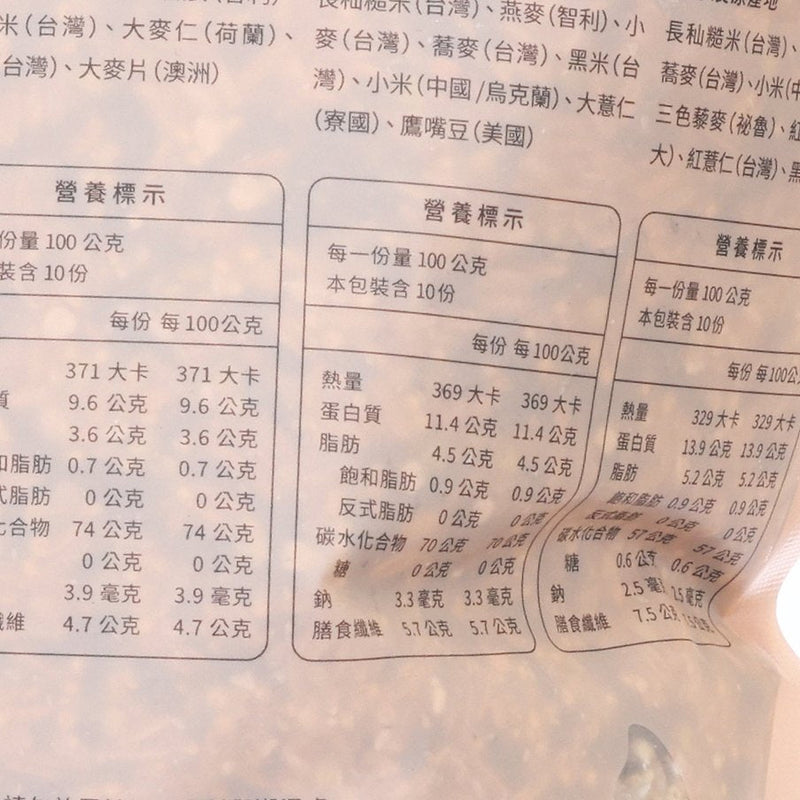 米(台灣)、大麥仁(荷蘭)、
台灣)、大麥片(澳洲)
營養標示
份量 100 公克
裝含 10份
每份 每100公克
371 大卡 371 大卡
質 9.6 公克 9.6 公克
3.6 公克 3.6 公克
和脂肪 0.7 公克 0.7 公克
式脂肪 0 公克 0 公克
化合物 74 公克 74 公克
0 公克 0 公克
3.9 毫克 3.9 毫克
纖維 4.7 公克 4.7 公克
長秈糙米(台灣)、燕麥(智利)、小
麥(台灣)、蕎麥(台灣)、黑米(台
灣)、小米(中國/烏克蘭)、大薏仁
(寮國)、鷹嘴豆(美國)
營養標示
每一份量 100 公克
本包裝含 10份
每份 每100公克
熱量 369 大卡 369 大卡
蛋白質 11.4 公克 11.4 公克
脂肪 4.5 公克 4.5 公克
飽和脂肪 0.9 公克 0.9 公克
反式脂肪 0 公克 0 公克
碳水化合物 70 公克 70 公克
糖 0 公克 0 公克
鈉 3.3 毫克 3.3 毫克
膳食纖維 5.7 公克 5.7 公克
原產地
長秈糙米(台灣)、
蕎麥(台灣)、小米(中
三色藜麥(祕魯)、紅
大)、紅薏仁(台灣)、黑
營養標示
每一份量 100 公克
本包裝含 10份
每份 每100公
熱量 329 大卡 329 大卡
蛋白質 13.9 公克 13.9 公克
脂肪 5.2 公克 5.2 公克
飽和脂肪 0.9 公克 0.9 公克
反式脂肪 0 公克 0 公克
碳水化合物 57 公克 57 公克
糖 0.6 公克 0.6 公克
鈉 2.5 毫克 2.5 毫克
膳食纖維 7.5 公克